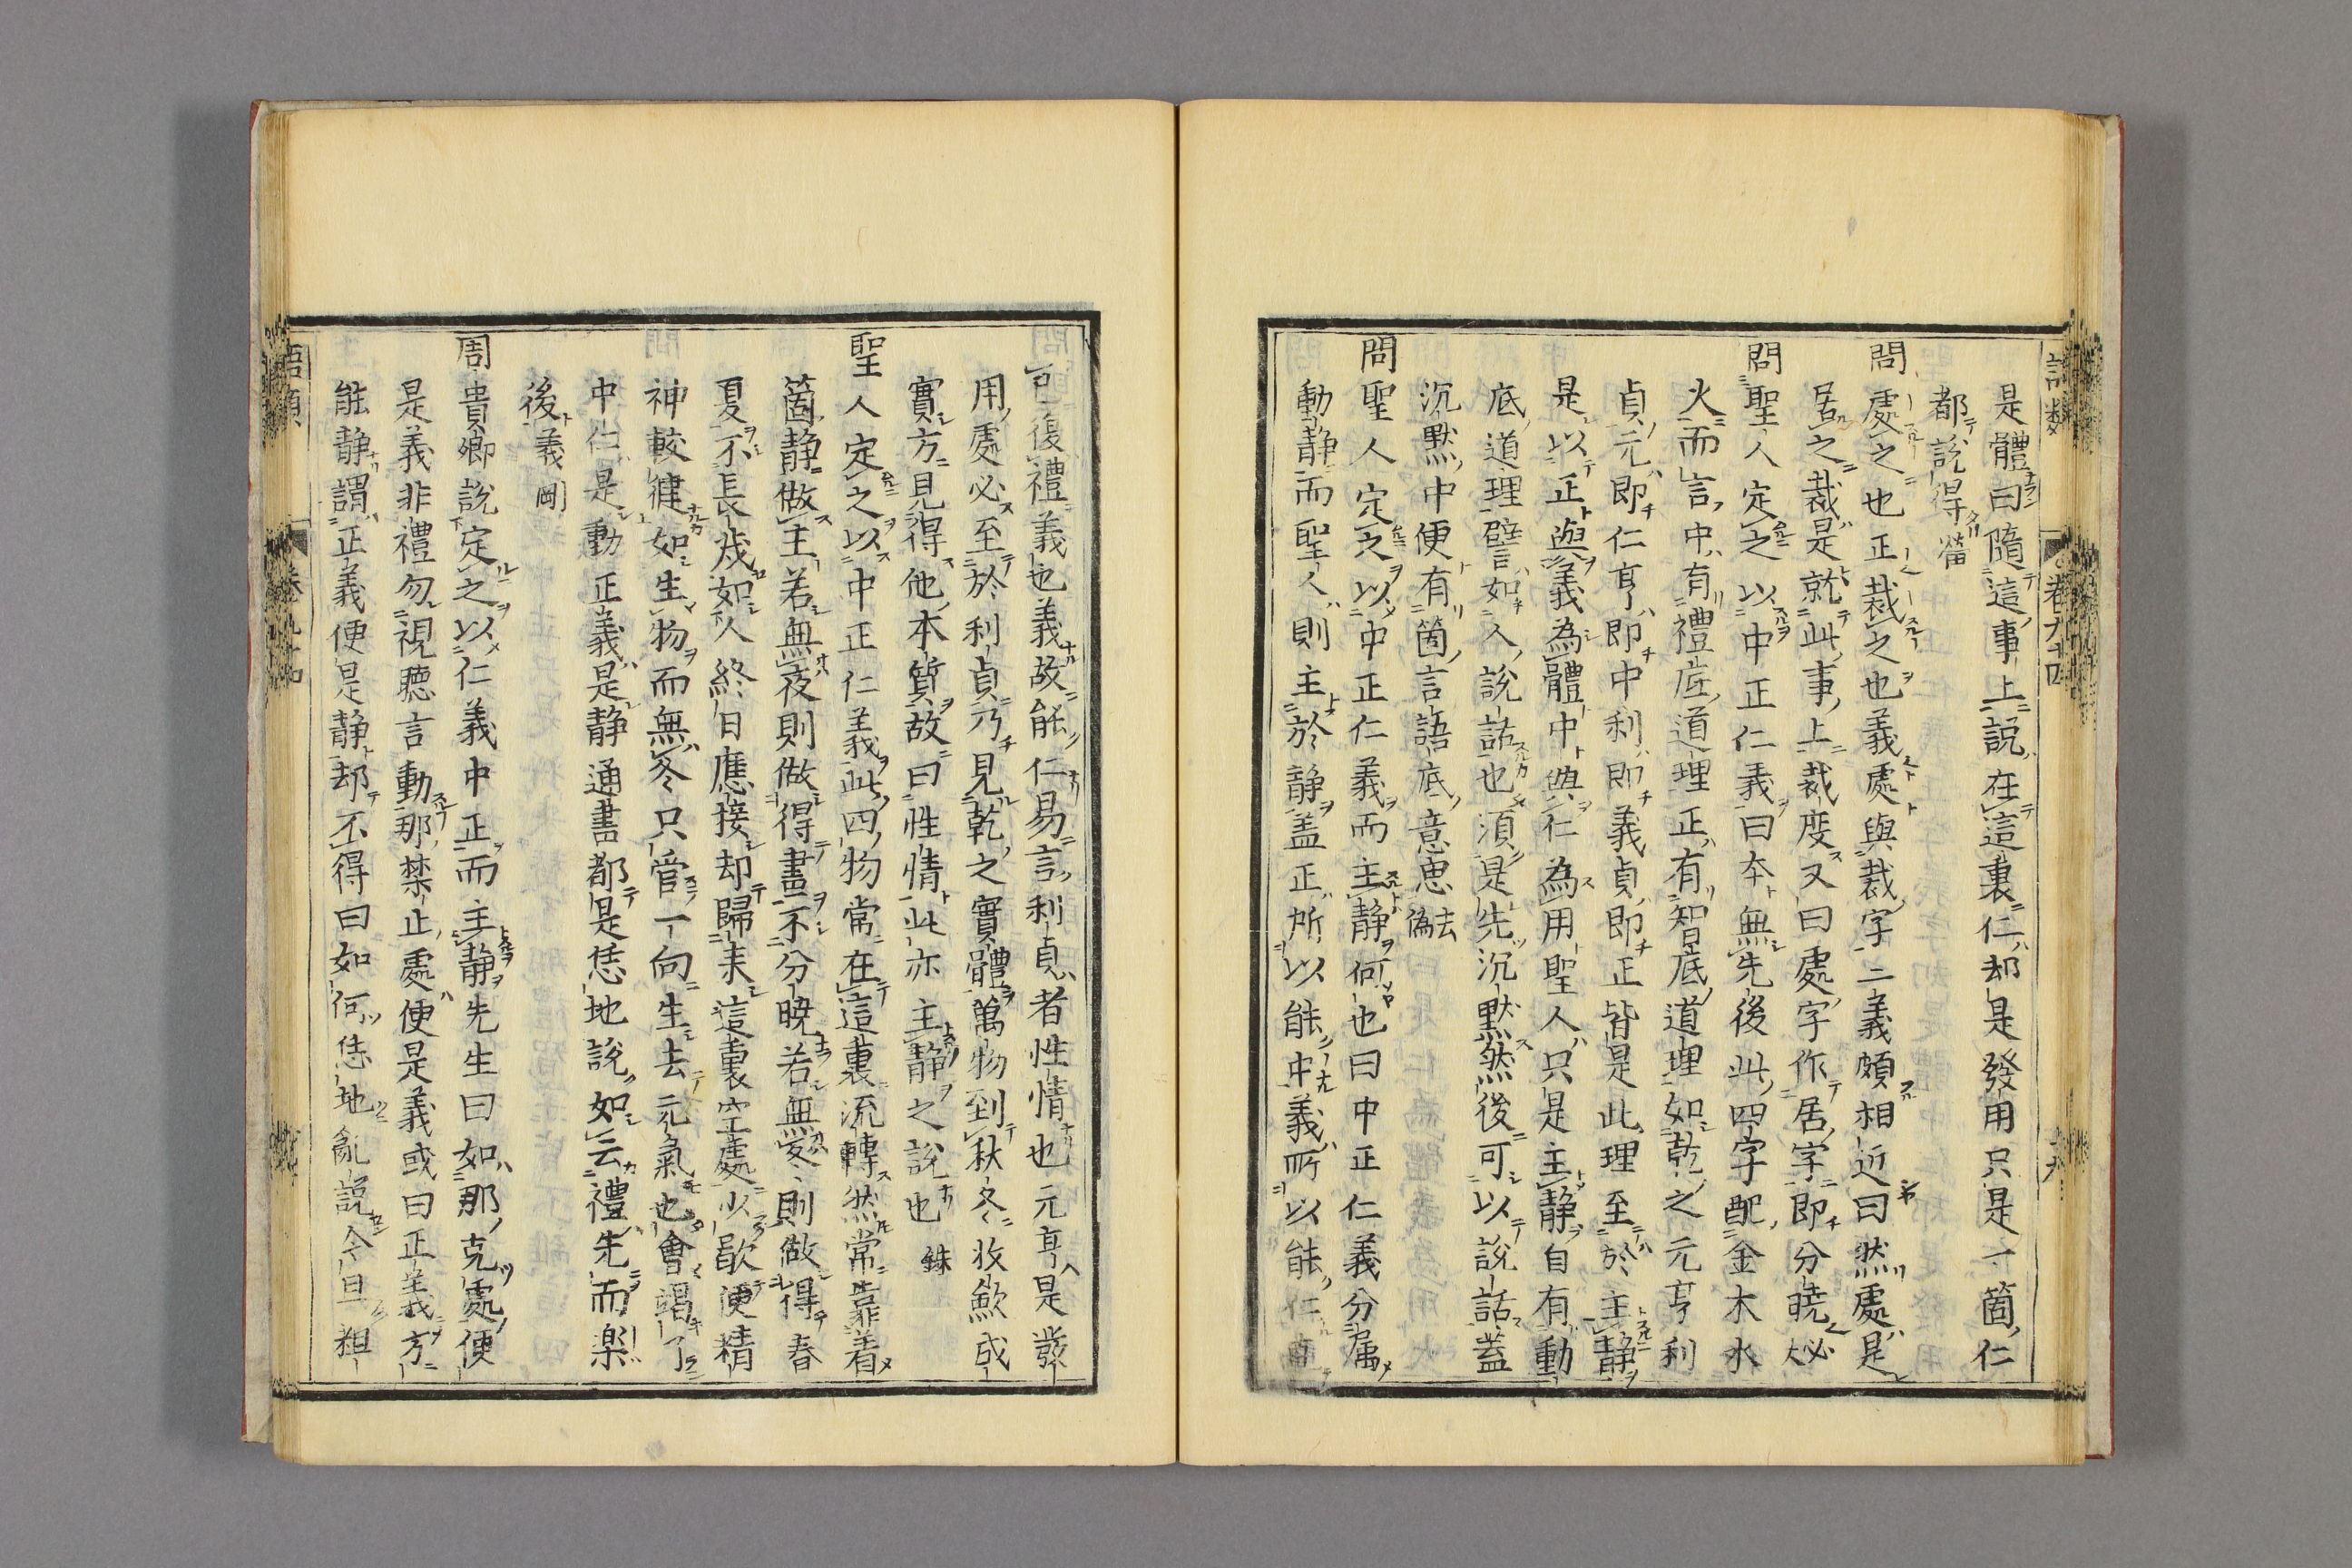 是體曰隨這事上説在這裏仁却是發用只是一箇仁
都説得 㽦
問處之也正裁之也義處與裁字二義頗相近曰然處是
居之裁是就此事上裁度又曰處字作居字即分曉 必大
問聖人定之以中正仁義曰本無先後此四字配金木水
火而言中有禮底道理正有智底道理如乾之元亨利
貞元即仁亨即中利即義貞即正皆是此理至於主静
是以正與義為體中與仁為用聖人只是主静自有動
底道理譬如人説話也須是先沉默然後可以説話蓋
沉默中便有箇言語底意思 去偽
問聖人定之以中正仁義而主静何也曰中正仁義分属
動静而聖人則主於静蓋正所以能中義所以能仁
可復禮義也義故能仁易言利貞者性情也元亨是發
用處必至於利貞乃見乾之實體萬物到秋冬收歛成
實方見得他本質故曰性情此亦主静之説也 銖
聖人定之以中正仁義此四物常在這裏流轉然常靠着
箇静做主若無夜則做得晝不分曉若無冬則做得春
夏不長茂如人終日應接却歸來這裏空處少歇便精
神較健如生物而無冬只管一向生去元氣也會竭了
中仁是動正義是静通書都是恁地説如云禮先而樂
後義剛
周貴卿説定之以仁義中正而主静先生曰如那克處便
是義非禮勿視聽言動那禁止處便是義或曰正義方
能静謂正義便是静却不得曰如何恁地亂説今且粗